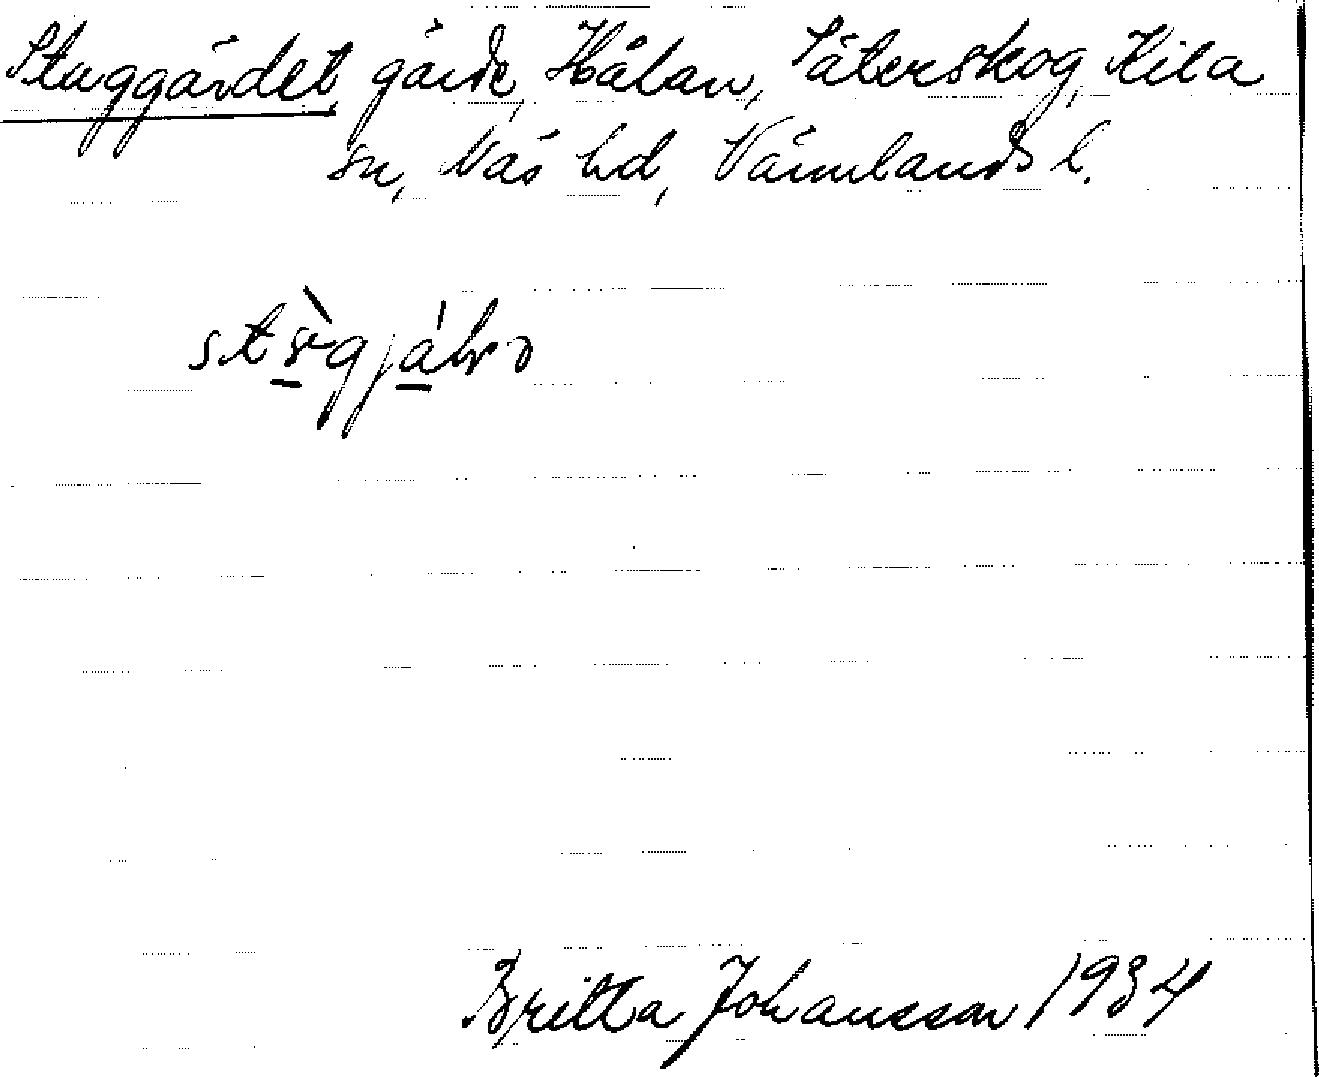 Stuggärdet, gärde, Hålan, Säterskog, Kila
sn, Näs hd, Värmlands l.
Britta Johansson 1934